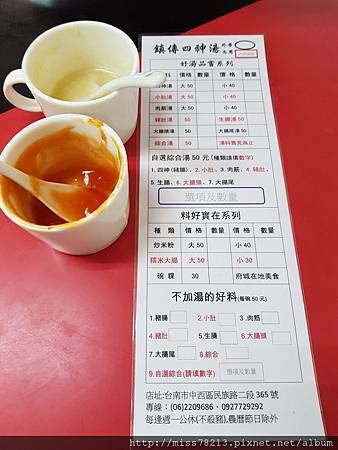 鎮傳四神湯
好湯品嘗系列
種類 價格 數量 價格 數量
四神湯 大 50 小 40
小肚湯 大 50 小 40
肉筋湯 大 50 小 40
豬肚湯 大 50 生腸湯 50
大腸頭湯 50 大腸尾湯 50
綜合湯 50 湯料售完為止
自選綜合湯 50 元(種類請填數字)
1.四神(豬腸)、2.小肚、3.肉筋、4.豬肚、
5.生腸、6.大腸頭、7.大腸尾
選項及數量
料好實在系列
種 類 價 格 數量 價 格 數量
炒米粉 大 50 小 40
糯米大腸 大 50 小 30
碗 粿 30 府城在地美食
不加湯的好料(每碗 50 元)
1.豬腸 2.小肚 3.肉筋
4.豬肚 5.生腸 6.大腸頭
7.大腸尾 8.綜合
9.自選綜合(請填數字) 選項及數量
店址:台南市中西區民族路二段 365 號
專線:(06)2209686、0927729292
每逢週一公休(不殺豬),農曆節日除外
http://miss78213.pixnet.net/album